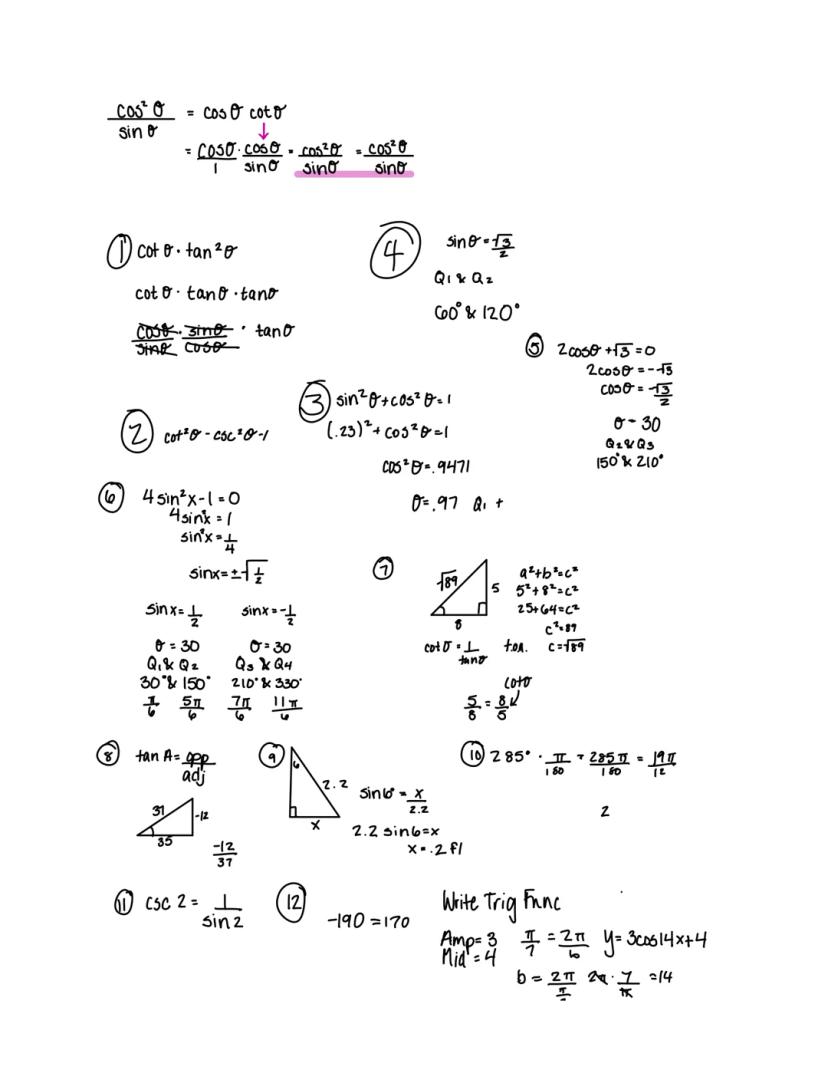 cos²θ / sinθ = cosθ cotθ
↓
= cosθ/1 · cosθ/sinθ = cos²θ/sinθ = cos²θ/sinθ
① cot θ · tan²θ
cot θ · tanθ · tanθ
cosθ/sinθ · sinθ/cosθ · tanθ
② cot²θ - csc²θ-1
③ sin²θ+cos²θ=1
(.23)²+cos²θ=1
cos²θ=.9471
θ=.97 Q₁ +
④ sinθ=√3/2
Q₁ & Q₂
60° & 120°
⑤ 2cosθ+√3=0
2cosθ=-√3
cosθ=-√3/2
θ=30
Q₂ & Q₃
150° & 210°
⑥ 4sin²x-1=0
4sin²x=1
sin²x=1/4
sinx=±√1/2
sinx=1/2 sinx=-1/2
θ=30 θ=30
Q₁ & Q₂ Q₃ & Q₄
30° & 150° 210° & 330°
π/6 5π/6 7π/6 11π/6
⑦ √89 5 8
a²+b²=c²
5²+8²=c²
25+64=c²
c²=89
c=√89
cotθ=1/tanθ t.o.a.
cotθ
5/8 = 8/5
⑧ tan A=opp/adj
37 -12 35
-12/37
⑨ 6 2.2 x
sin6°=x/2.2
2.2 sin6=x
x=.2 ft
⑩ 285° · π/180 = 285π/180 = 19π/12
2
⑪ csc 2 = 1/sin2
⑫ -190=170
Write Trig Func
Amp=3 π/7=2π/b y=3cos14x+4
Mid=4
b=2π/π/7 2π · 7/π =14